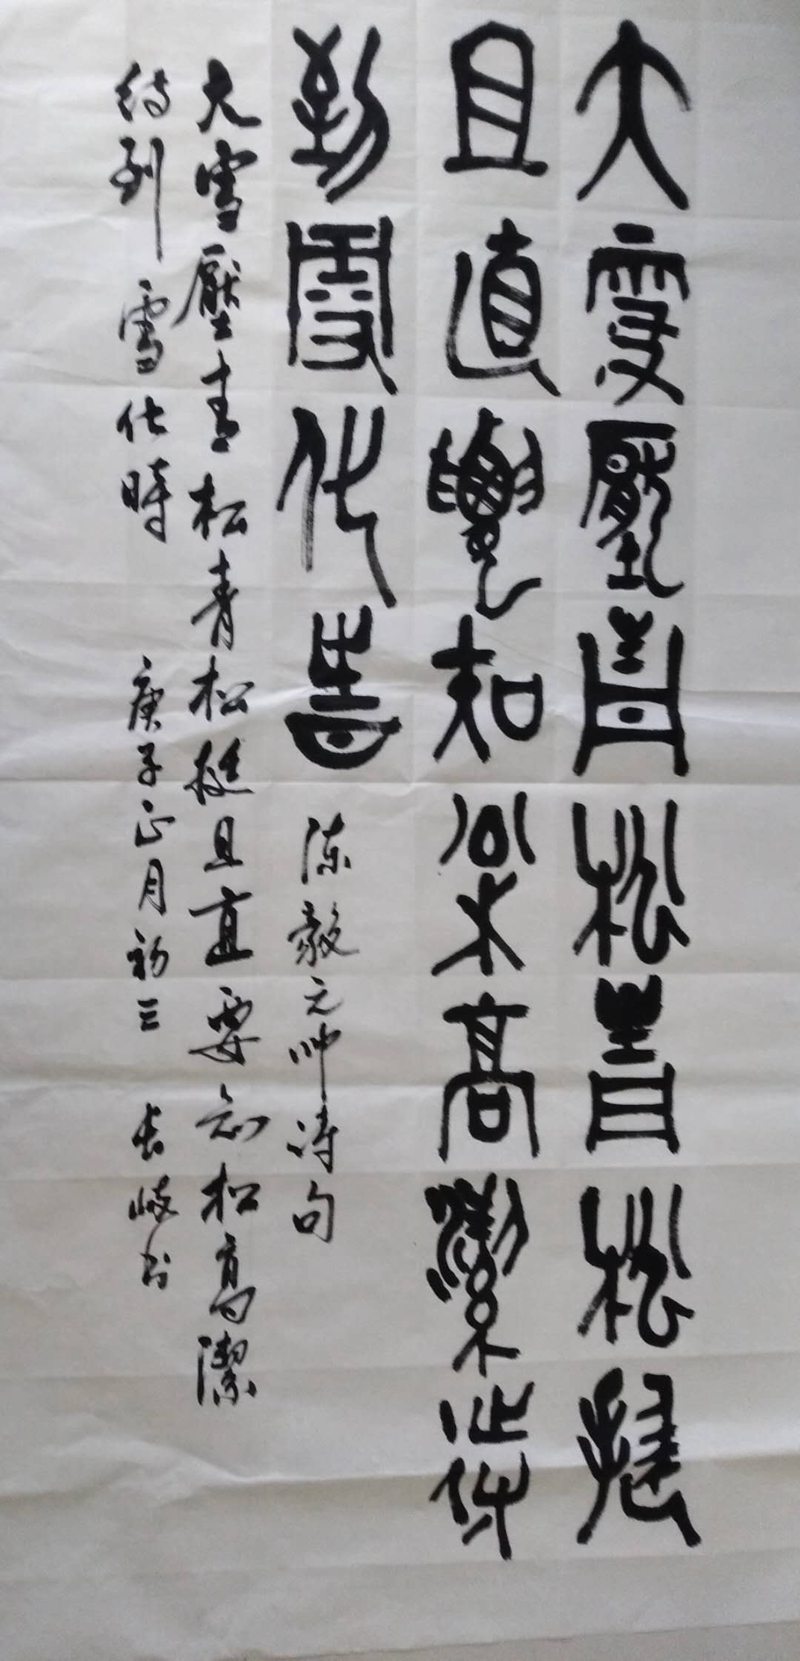 大雪壓青松青松挺
且直要知松高潔待
到雪化時
陈毅元帅诗句
大雪壓青松青松挺且直要知松高潔
待到雪化時 庚子正月初三 长岐书